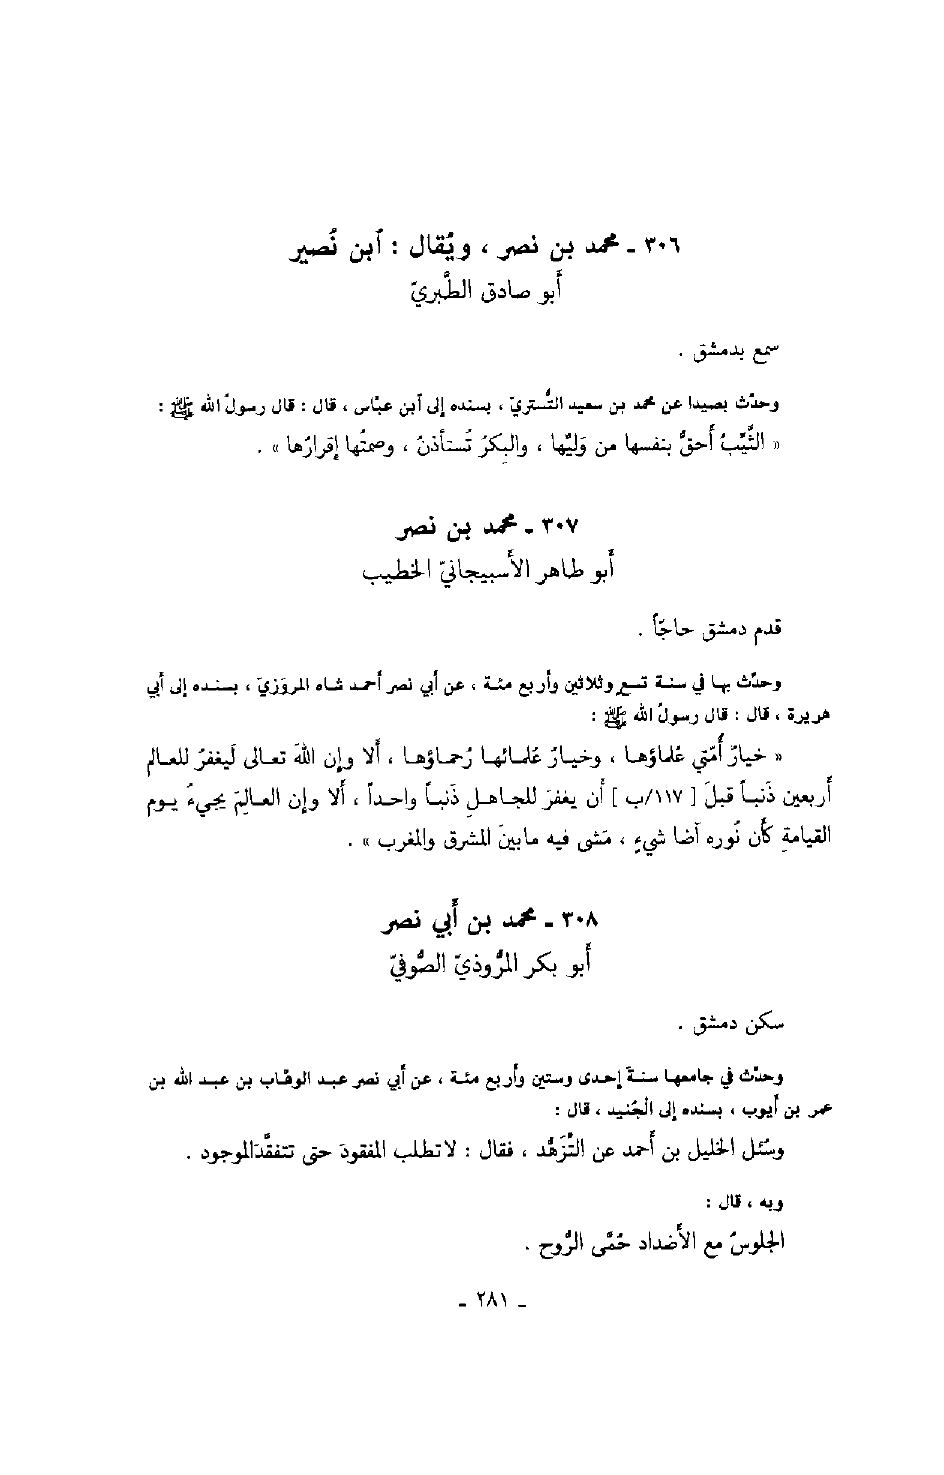 ٣٠٦ ـ محمد بن نصر ، ويُقال : ٱبن نُصير
أَبو صادق الطَّبريّ
سمع بدمشق .
وحدّث بصيدا عن محمد بن سعيد التُّستريّ ، بسنده إلى ٱبن عبّاس ، قال : قال رسولُ الله ﷺ :
« الثَّيِّبُ أَحقُّ بنفسها من وَليِّها ، والبكرُ تُستأذنُ ، وصمتُها إقرارُها » .
٣٠٧ ـ محمد بن نصر
أَبو طاهر الأَسبيجانيّ الخطيب
قدم دمشق حاجّاً .
وحدّث بها في سنة تسع وثلاثين وأربع مئة ، عن أبي نصر أحمد شاه المروَزيّ ، بسنده إلى أبي
هريرة ، قال : قال رسولُ الله ﷺ :
« خيارُ أُمّتي عُلماؤها ، وخيارُ عُلمائها رُحماؤها ، أَلا وإن اللهَ تعالى لَيغفرُ للعالم
أَربعين ذَنباً قبلَ [ ١١٧/ب ] أَن يغفرَ للجاهلِ ذَنباً واحداً ، أَلا وإن العالِمَ يجيءُ يوم
القيامةِ كأَن نُوره أضا شيءٍ ، مَشى فيه مابينَ المشرق والمغرب » .
٣٠٨ ـ محمد بن أَبي نصر
أَبو بكر المرُّوذيّ الصُّوفيّ
سكن دمشق .
وحدّث في جامعها سنةَ إحدى وستين وأربع مئة ، عن أبي نصر عبد الوهّاب بن عبد الله بن
عمر بن أيوب ، بسنده إلى الجُنيد ، قال :
وسُئل الخليل بن أَحمد عن التَّزَهُّد ، فقال : لاتطلب المفقودَ حتى تتفقَّدَالموجود .
وبه ، قال :
الجلوسُ مع الأَضداد حُمّى الرُّوح .
ـ ٢٨١ ـ